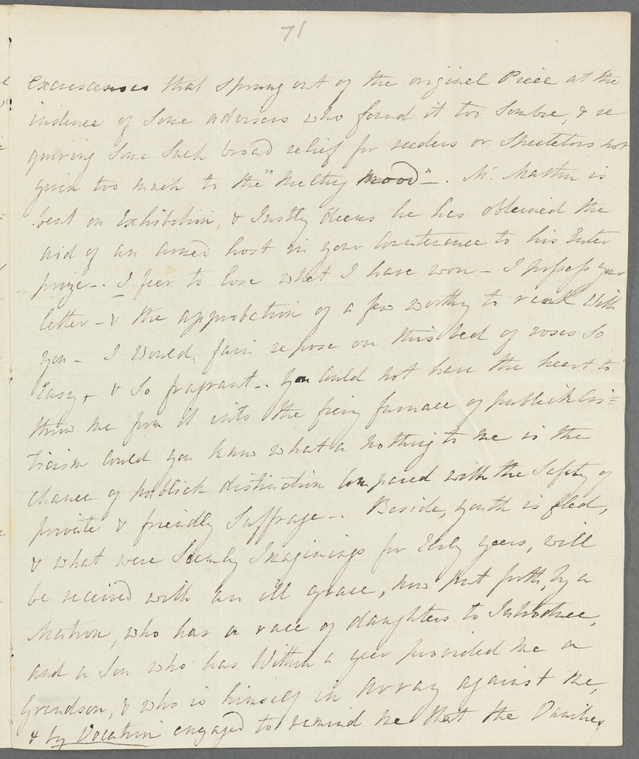 71
excrescences that sprung out of the original Piece at the
instance of some advisers who found it too Sombre, & re
quiring some such broad relief for readers or Spectators not
given too much to the "melting mood"-. Mr. Martin is
bent on Exhibition, & Justly deems he has obtained the
aid of an armed host in your Countenance to his Enter
-prize-. I fear to lose what I have won - I possess your
letter - & the approbation of a few worthy to rank with
you - I would fain repose on this bed of roses so
Easy, & so fragrant-. You could not have the heart to
throw me from it into the fiery furnace of publick Cri=
ticism could you know what a nothing to me is the
chance of publick distinction compared with the Safety of
private & friendly Suffrage-. Beside, youth is fled,
& what were Seemly Imaginings for Early years, will
be received with an ill grace, now put forth, by a
Matron, who has a race of daughters to Introduce,
and a Son who has within a year provided me a
Grandson, & who is himself in array against me,
& by Vocation engaged to remind me that the Vanities